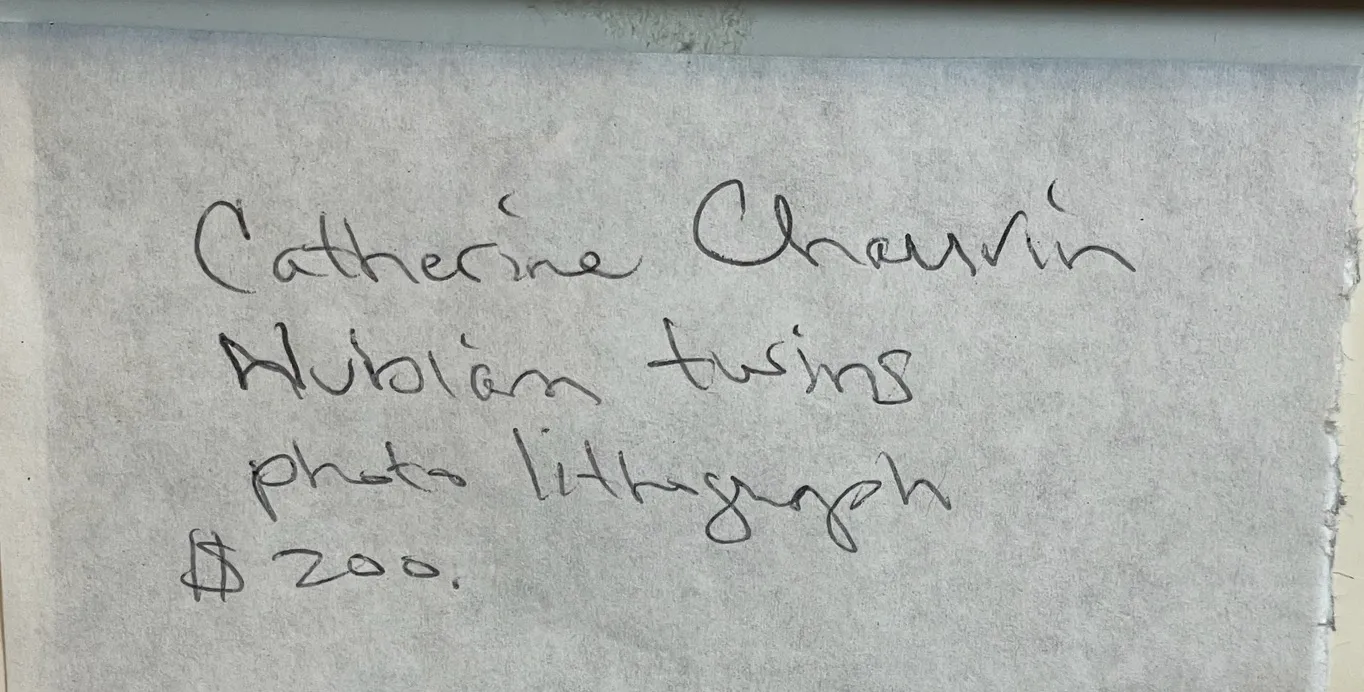 Catherine Chauvin
Nubian twins
photo lithograph
$ 200.